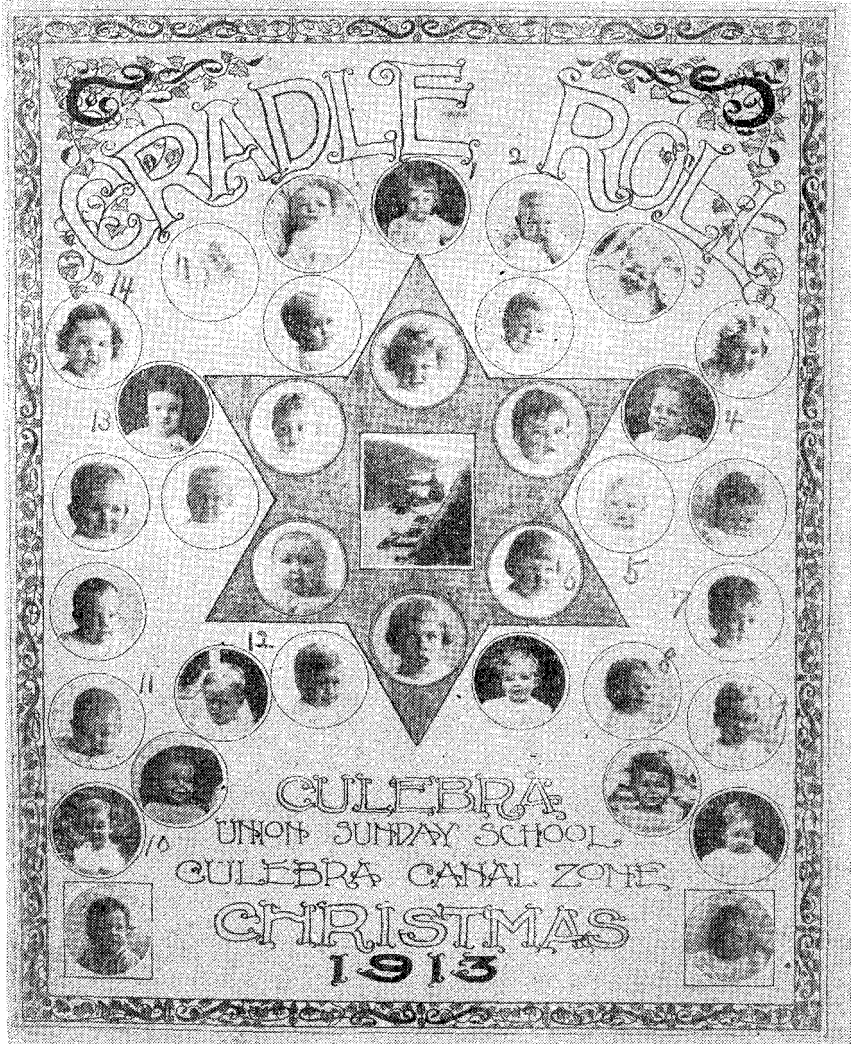 CRADLE ROLL
1
2
3
14
13
4
5
6
7
12
8
11
10
CULEBRA
UNION SUNDAY SCHOOL
CULEBRA CANAL ZONE
CHRISTMAS
1913